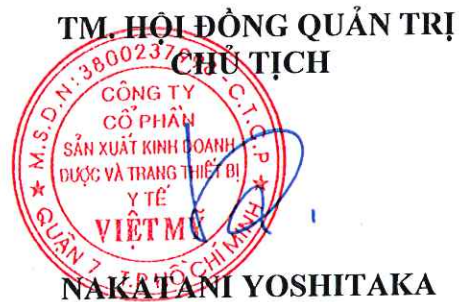 TM. HỘI ĐỒNG QUẢN TRỊ
CHỦ TỊCH
CÔNG TY
CỔ PHẦN
SẢN XUẤT KINH DOANH
DƯỢC VÀ TRANG THIẾT BỊ
Y TẾ
VIỆT MỸ
QUẬN 7 - T.P HỒ CHÍ MINH
NAKATANI YOSHITAKA